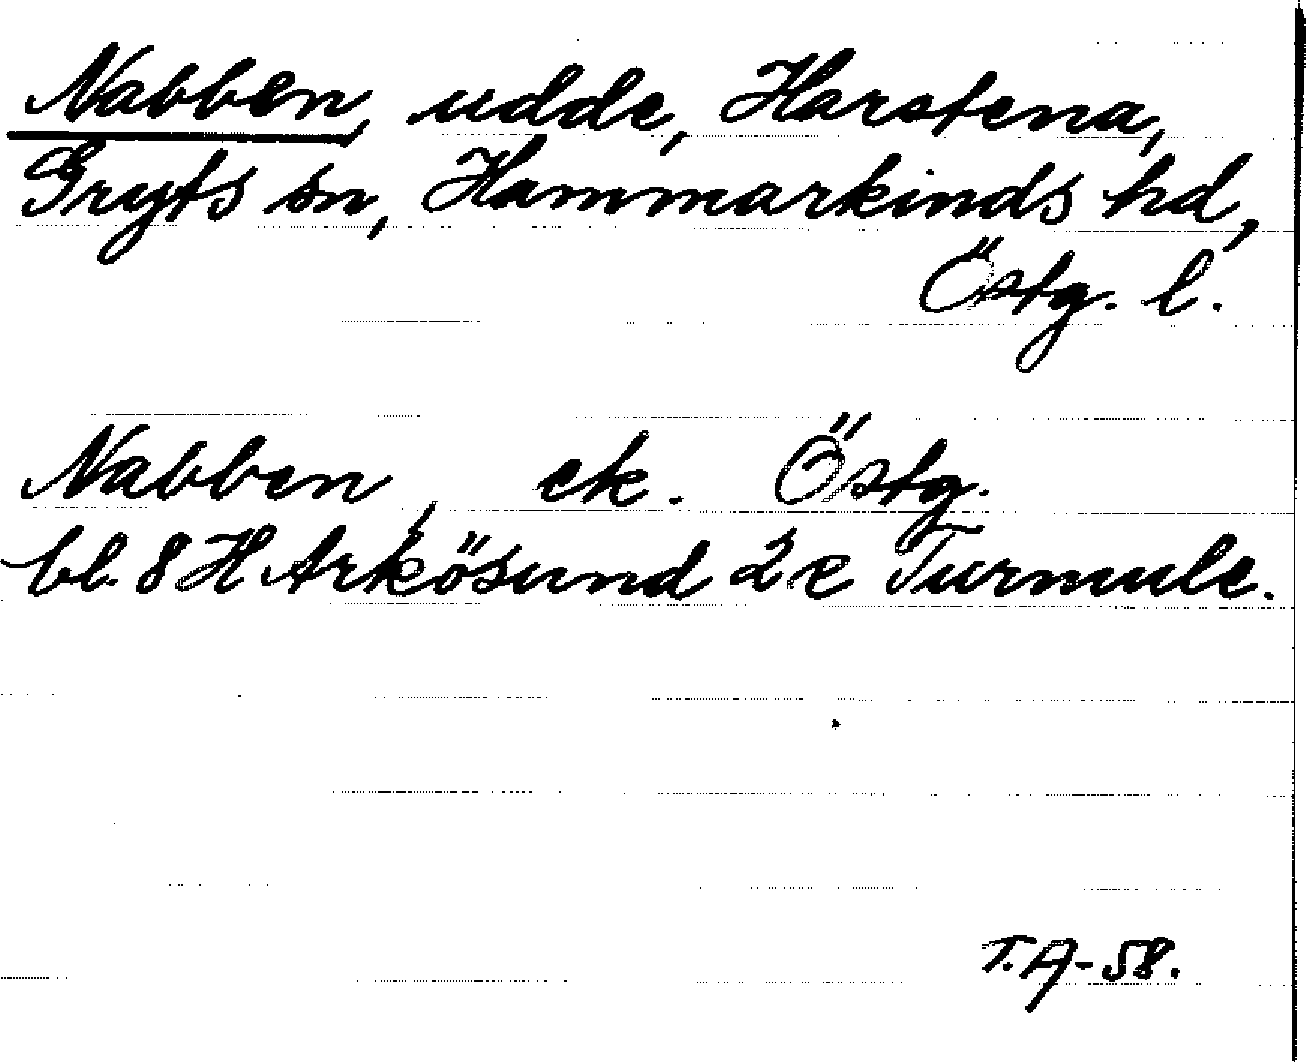 Nabben, udde, Harstena,
Gryts sn, Hammarkinds hd,
Östg. l.
Nabben, ek. Östg.
bl. 8 H Arkösund 2 c Turmule.
T.A-58.